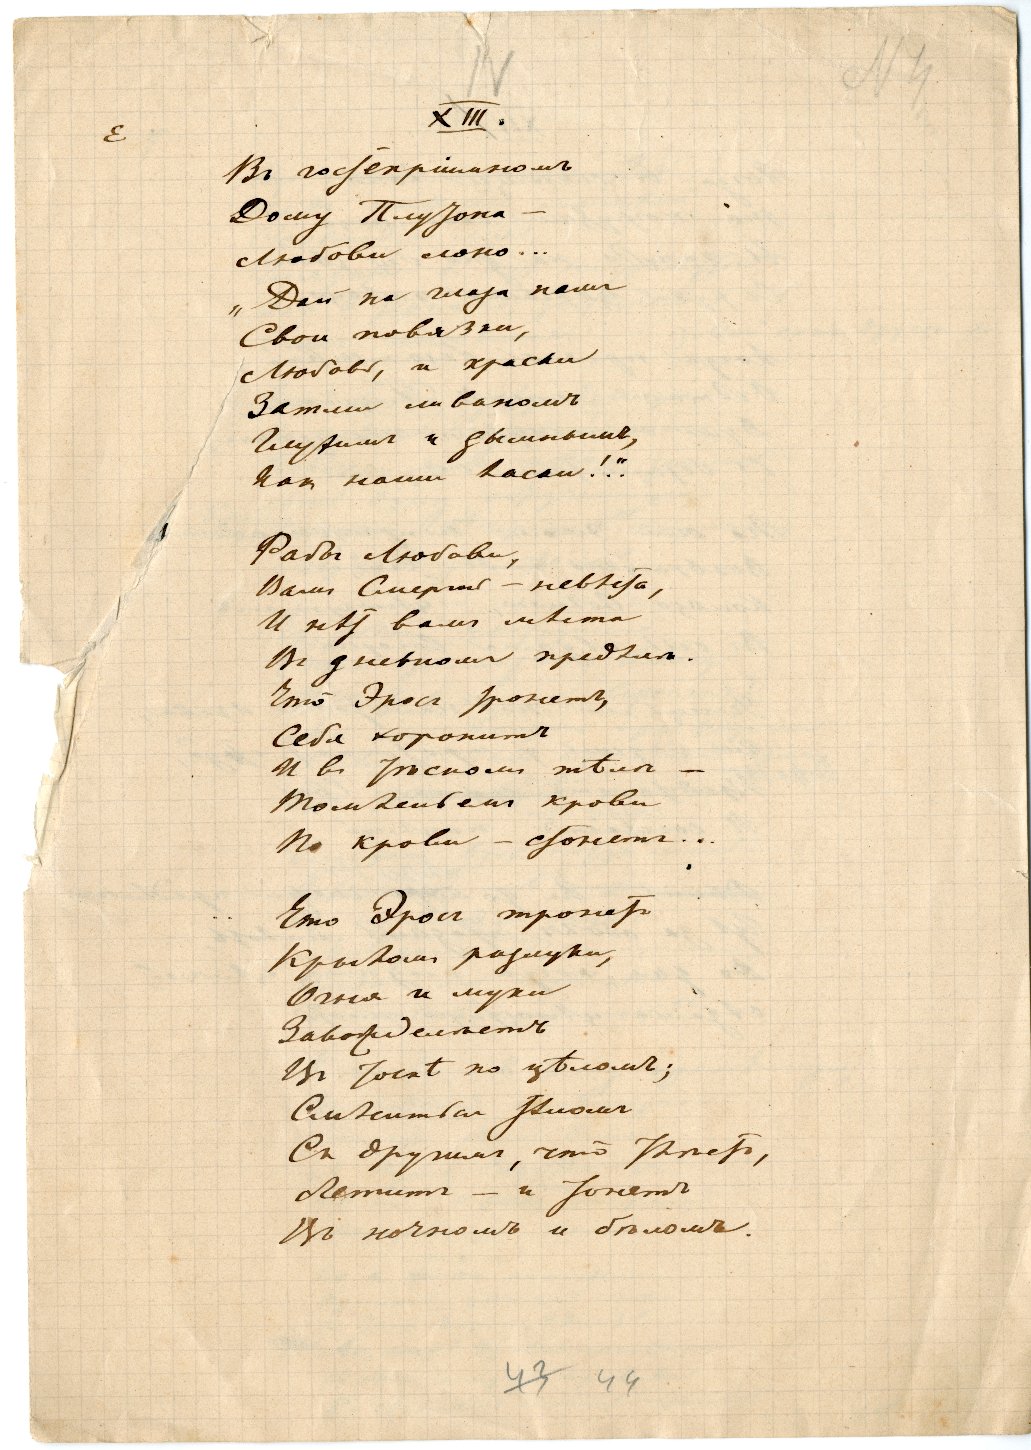 IV
N 4
XIII.
ε
Въ гостепріимномъ
Дому Плутона —
Любови лоно...
„Дай на глаза намъ
Свои повязки,
Любовь, и краски
Затми ливаномъ
Глухимъ и дымнымъ,
Какъ наши ласки!.."
Рабы Любови,
Вамъ Смерть — невѣста,
И нѣтъ вамъ мѣста
Въ дневномъ предѣлѣ.
Что Эросъ тронетъ,
Себя хоронитъ
И въ тѣсномъ тѣлѣ —
Томленьемъ крови
По крови — стонетъ...
Что Эросъ тронетъ
Крыломъ разлуки,
Огня и муки
Завожделѣетъ
Въ тоскѣ по цѣломъ;
Смѣситься тѣломъ
Съ другимъ, что тлѣетъ,
Летитъ — и тонетъ
Въ ночномъ и бѣломъ.
43 44